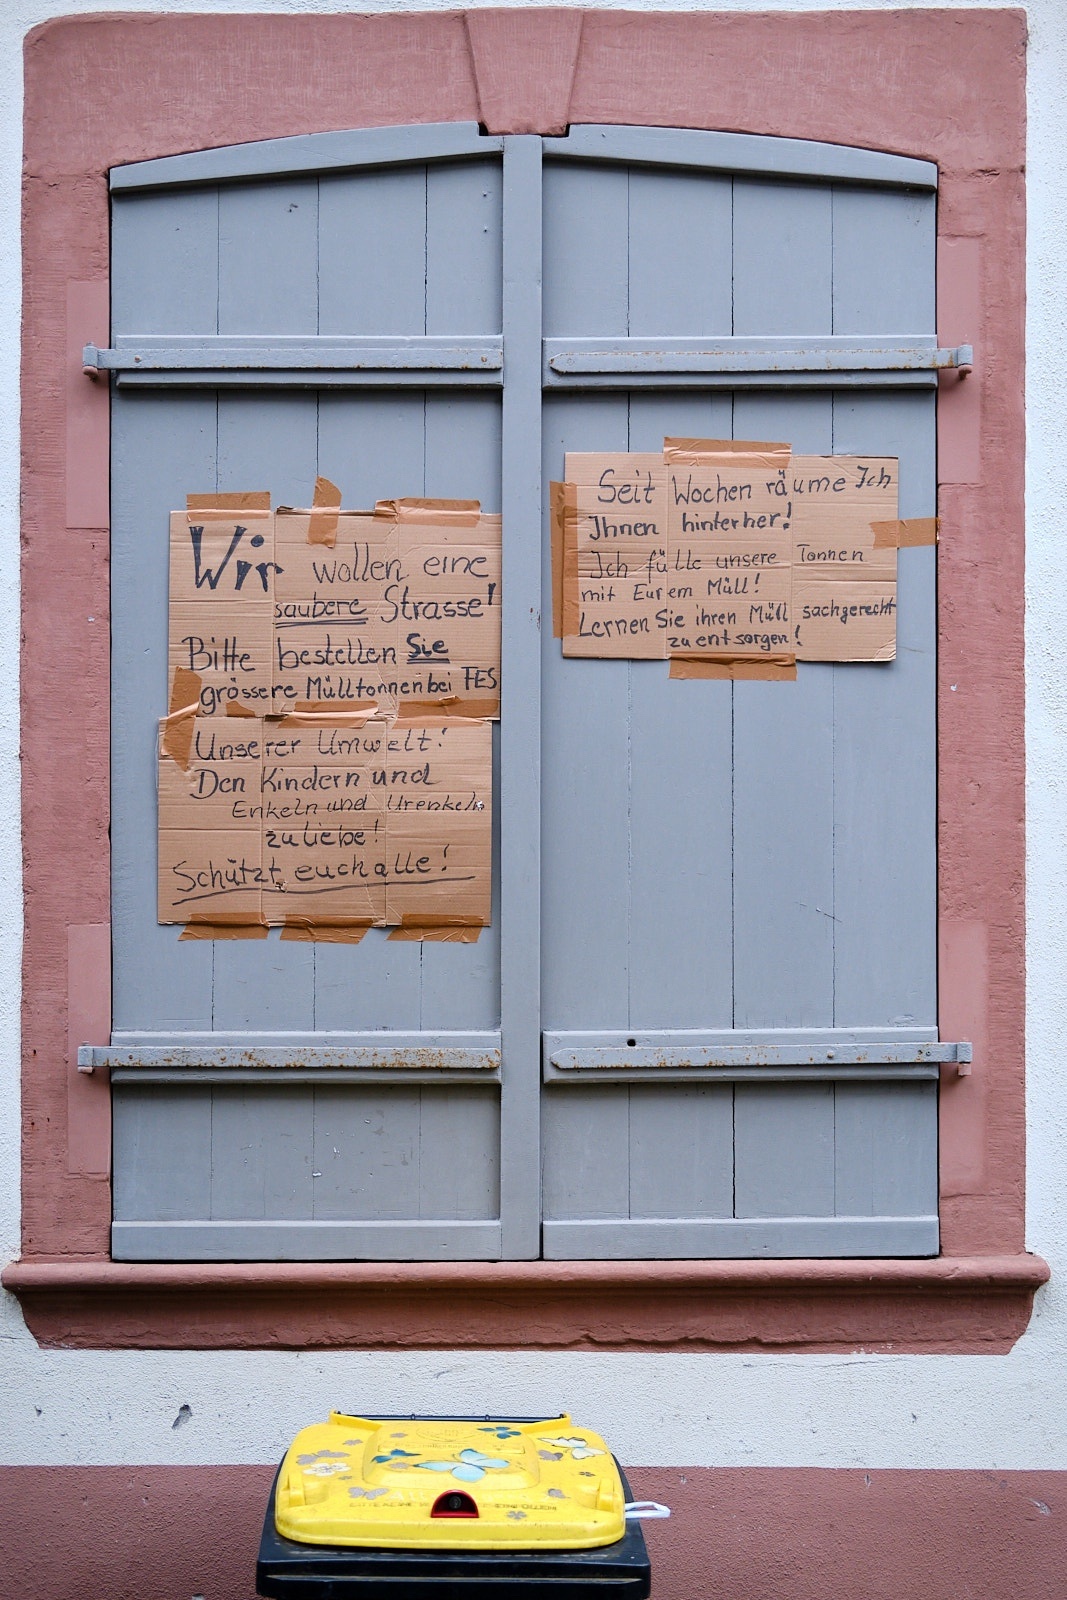 Wir wollen eine
saubere Strasse!
Bitte bestellen Sie
grössere Mülltonnen bei FES
Unserer Umwelt!
Den Kindern und
Enkeln und Urenkeln
zu liebe!
Schützt euch alle!
Seit Wochen räume Ich
Ihnen hinterher!
Ich fülle unsere Tonnen
mit Eurem Müll!
Lernen Sie ihren Müll sachgerecht
zu entsorgen!